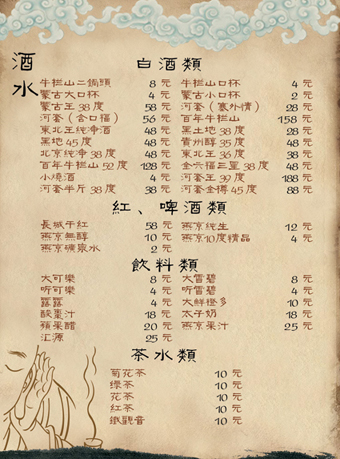 酒水
白酒類
牛栏山二鍋頭 8 元 牛栏山口杯 4 元
蒙古大口杯 4 元 蒙古小口杯 2 元
蒙古王 38 度 58 元 河套（塞外情） 28 元
河套（合口福） 56 元 百年牛栏山 158 元
東北王纯净酒 48 元 黑土地 38 度 28 元
黑地 45 度 48 元 貴州醇 35 度 48 元
北京純净 38 度 48 元 東北王 36 度 38 元
百年牛栏山 52 度 128 元 金六福三星 38 度 48 元
小燒酒 4 元 河套王 39 度 188 元
河套半斤 38 度 38 元 河套金樽 45 度 88 元
紅、啤酒類
長城干红 58 元 燕京纯生 12 元
燕京無醇 10 元 燕京10度精品 4 元
燕京礦泉水 2 元
飲料類
大可樂 8 元 大雪碧 8 元
听可樂 4 元 听雪碧 4 元
露露 4 元 大鮮橙多 10 元
酸棗汁 18 元 太子奶 18 元
蘋果醋 20 元 燕京果汁 25 元
汇源 25 元
茶水類
菊花茶 10 元
绿茶 10 元
花茶 10 元
红茶 10 元
鐵觀音 10 元